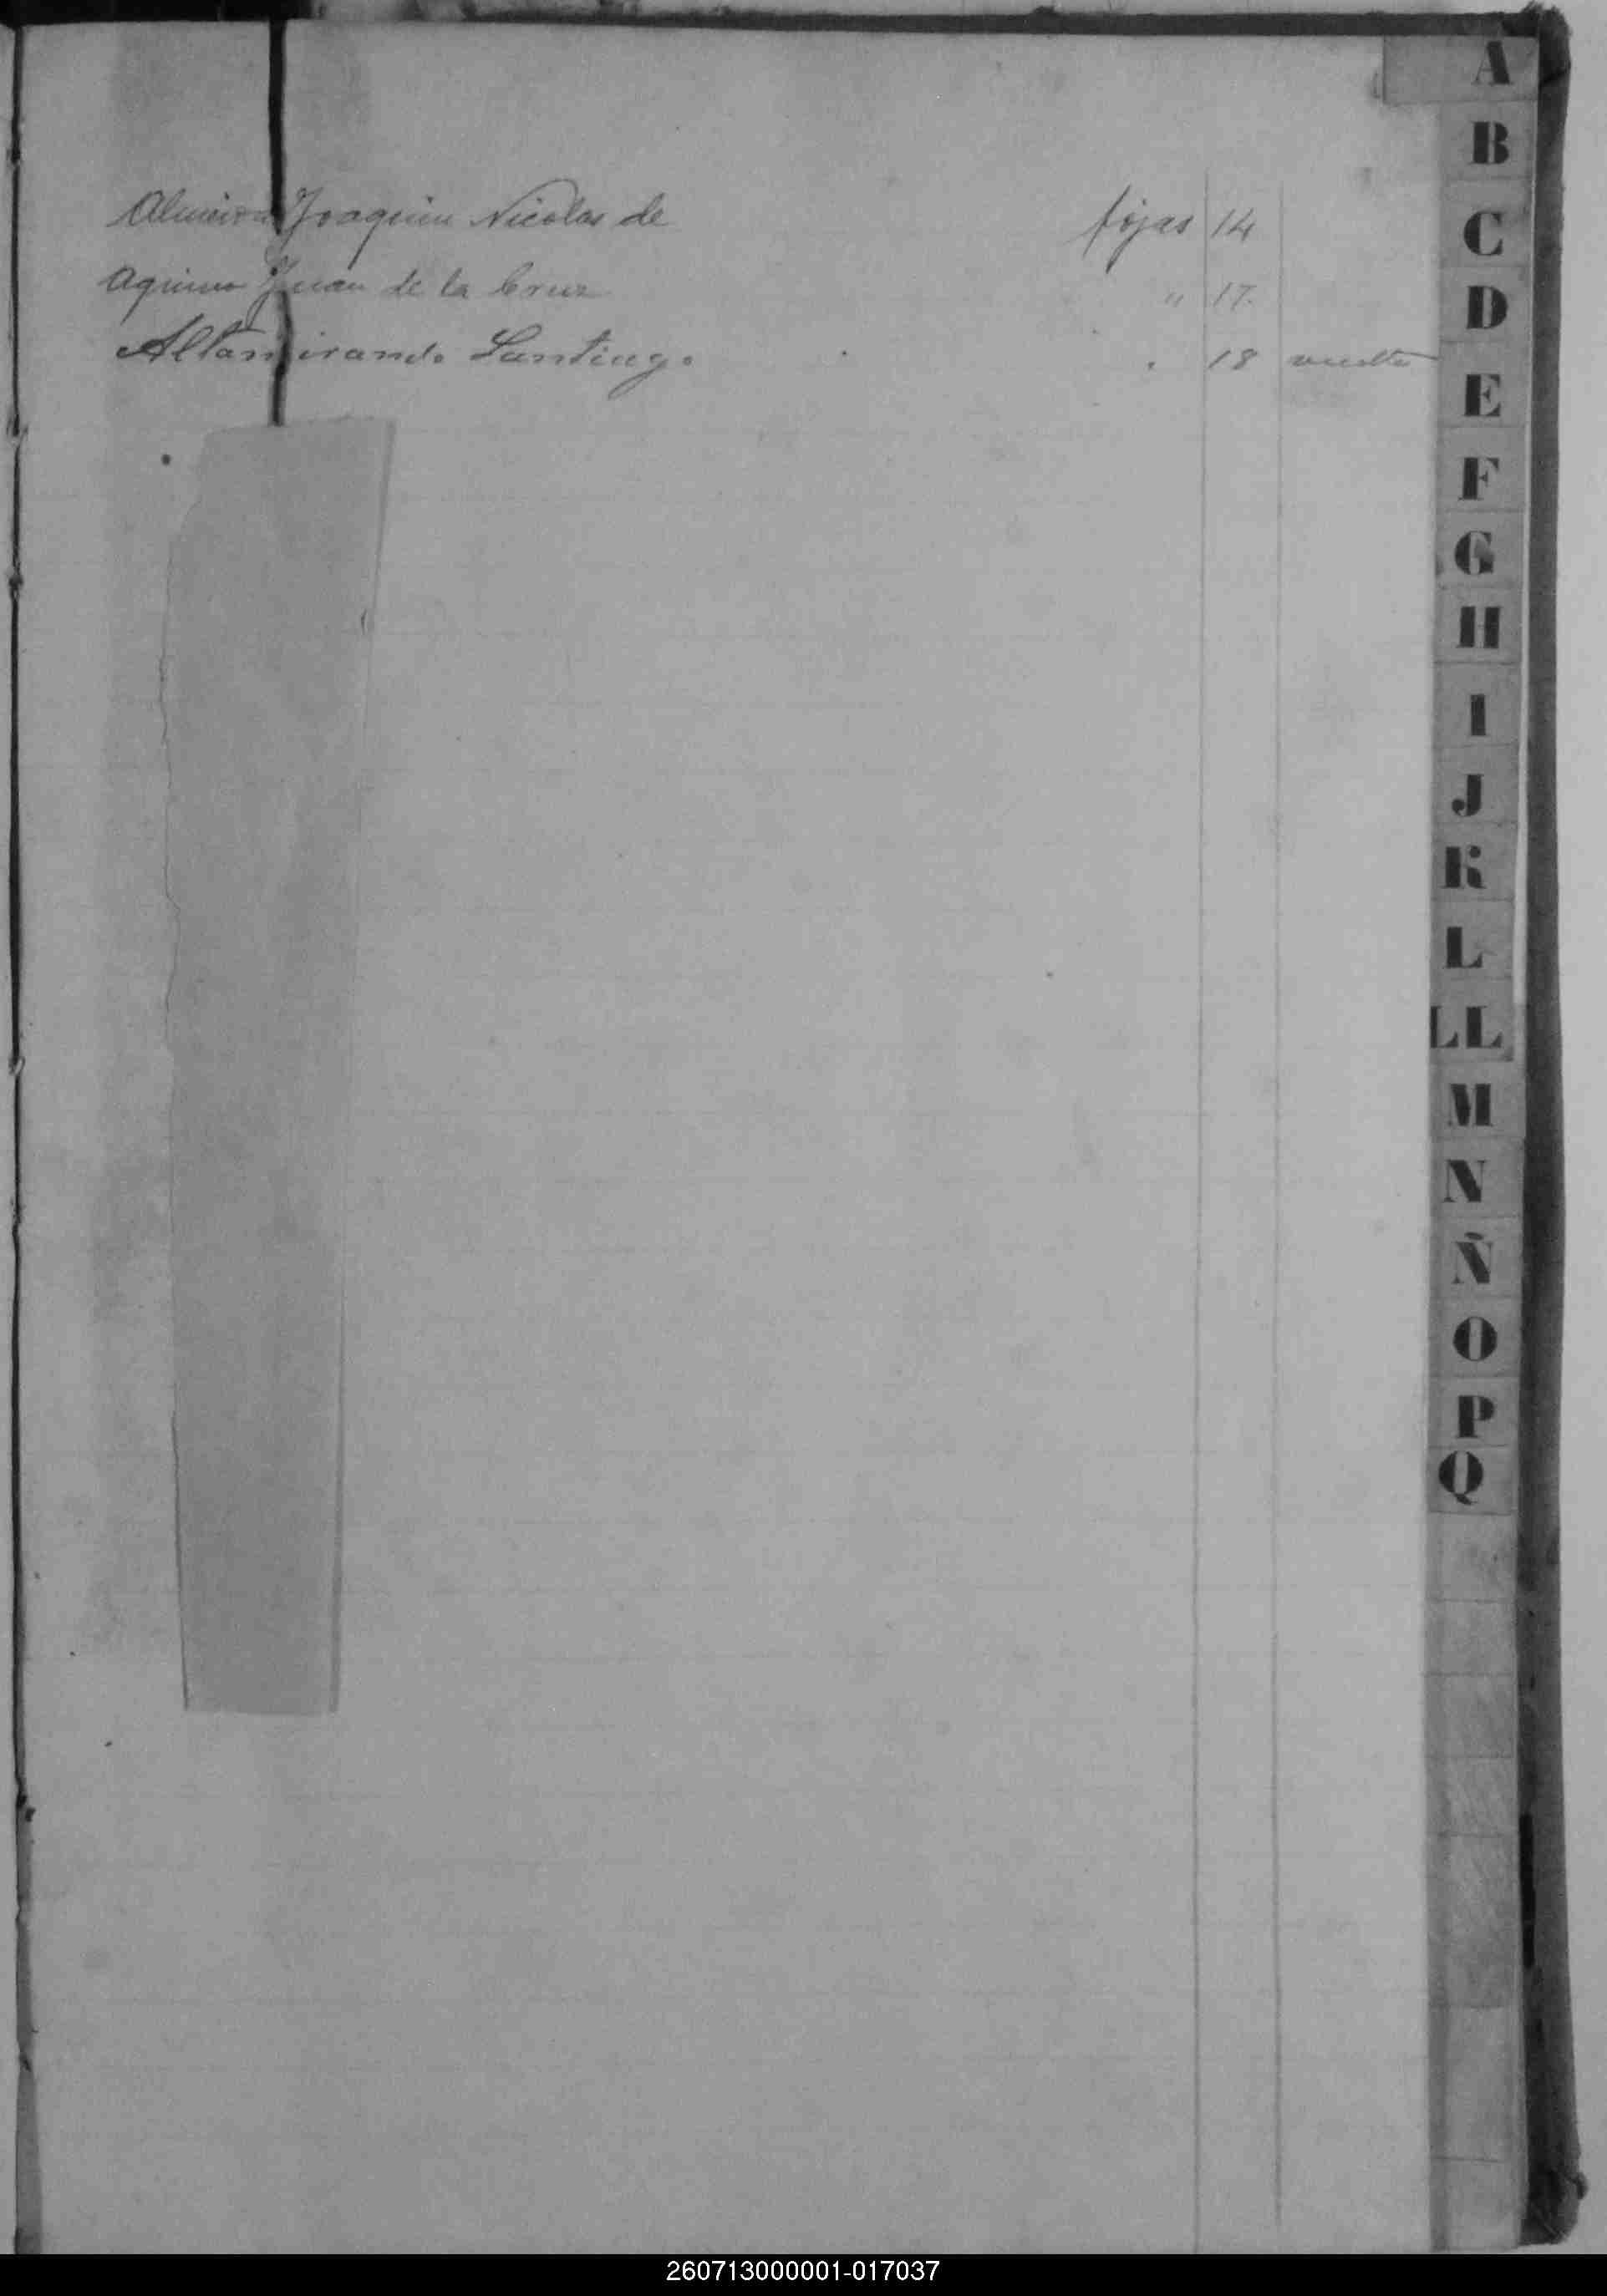 Almeira Joaquin Nicolas de fojas 14
Aquino Juan de la Cruz " 17.
Altamirando Santiago . 18 vuelta
A
B
C
D
E
F
G
H
I
J
K
L
LL
M
N
Ñ
O
P
Q
260713000001-017037